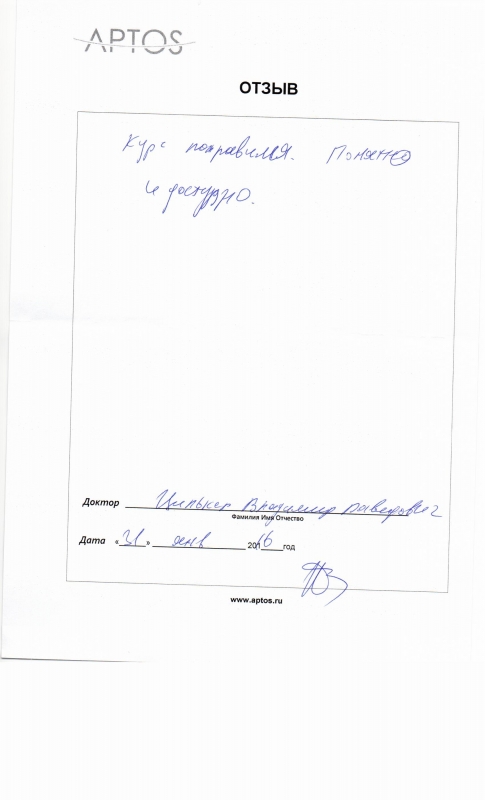 APTOS
ОТЗЫВ
Курс понравился. Понятно
и доступно.
Доктор Владимир Давидович
Фамилия Имя Отчество
Дата «31» янв 2016 год
www.aptos.ru